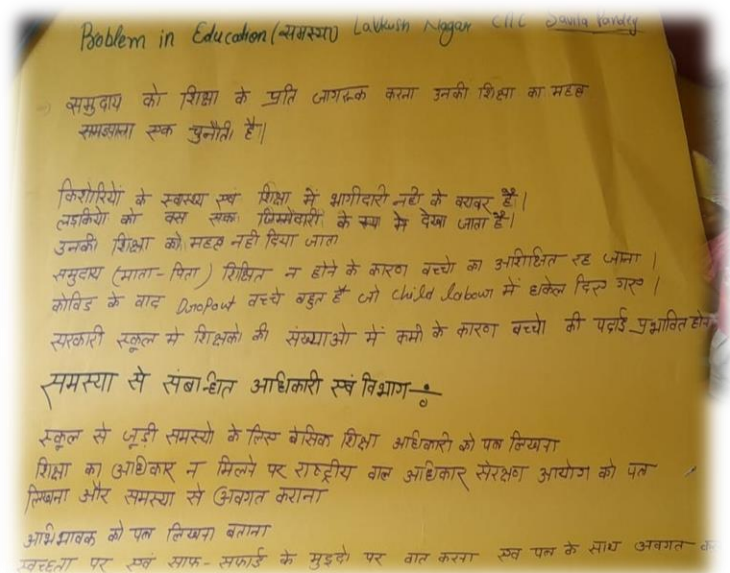 Problem in Education (समस्या) Lavkush Nagar CHC Savita Pandey
समुदाय को शिक्षा के प्रति जागरूक करना उनकी शिक्षा का महत्व
समझाना एक चुनौती है|
किशोरियों के स्वास्थ्य एवं शिक्षा में भागीदारी नही के बराबर है|
लड़कियो को बस एक जिम्मेदारी के रूप मे देखा जाता है|
उनकी शिक्षा को महत्व नही दिया जाता
समुदाय (माता-पिता) शिक्षित न होने के कारण बच्चो का अशिक्षित रह जाना|
कोविड के बाद Dropout बच्चे बहुत है जो child labour में धकेल दिए गए|
सरकारी स्कूल मे शिक्षको की संख्याओ में कमी के कारण बच्चो की पढाई प्रभावित होन
समस्या से संबान्धित आधिकारी एवं विभाग÷
स्कूल से जूड़ी समस्यो के लिए बेसिक शिक्षा आधिकारी को पत्र लिखना
शिक्षा का अधिकार न मिलने पर राष्ट्रीय बाल आधिकार संरक्षण आयोग को पत्र
लिखना और समस्या से अवगत कराना
अभिभावक को पत्र लिखना बताना
स्वच्छता पर एवं साफ-सफाई के मुद्दो पर बात करना एवं पत्र के साथ अवगत